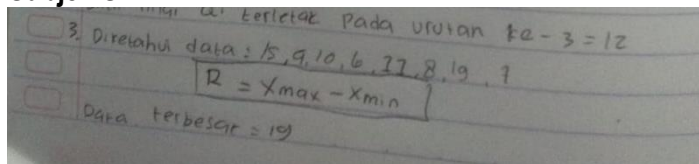 terletak pada urutan ke - 3 = 12
3. Diketahui data : 15, 9, 10, 6, 11, 8, 19, 7
R = Xmax - Xmin
Data terbesar = 19